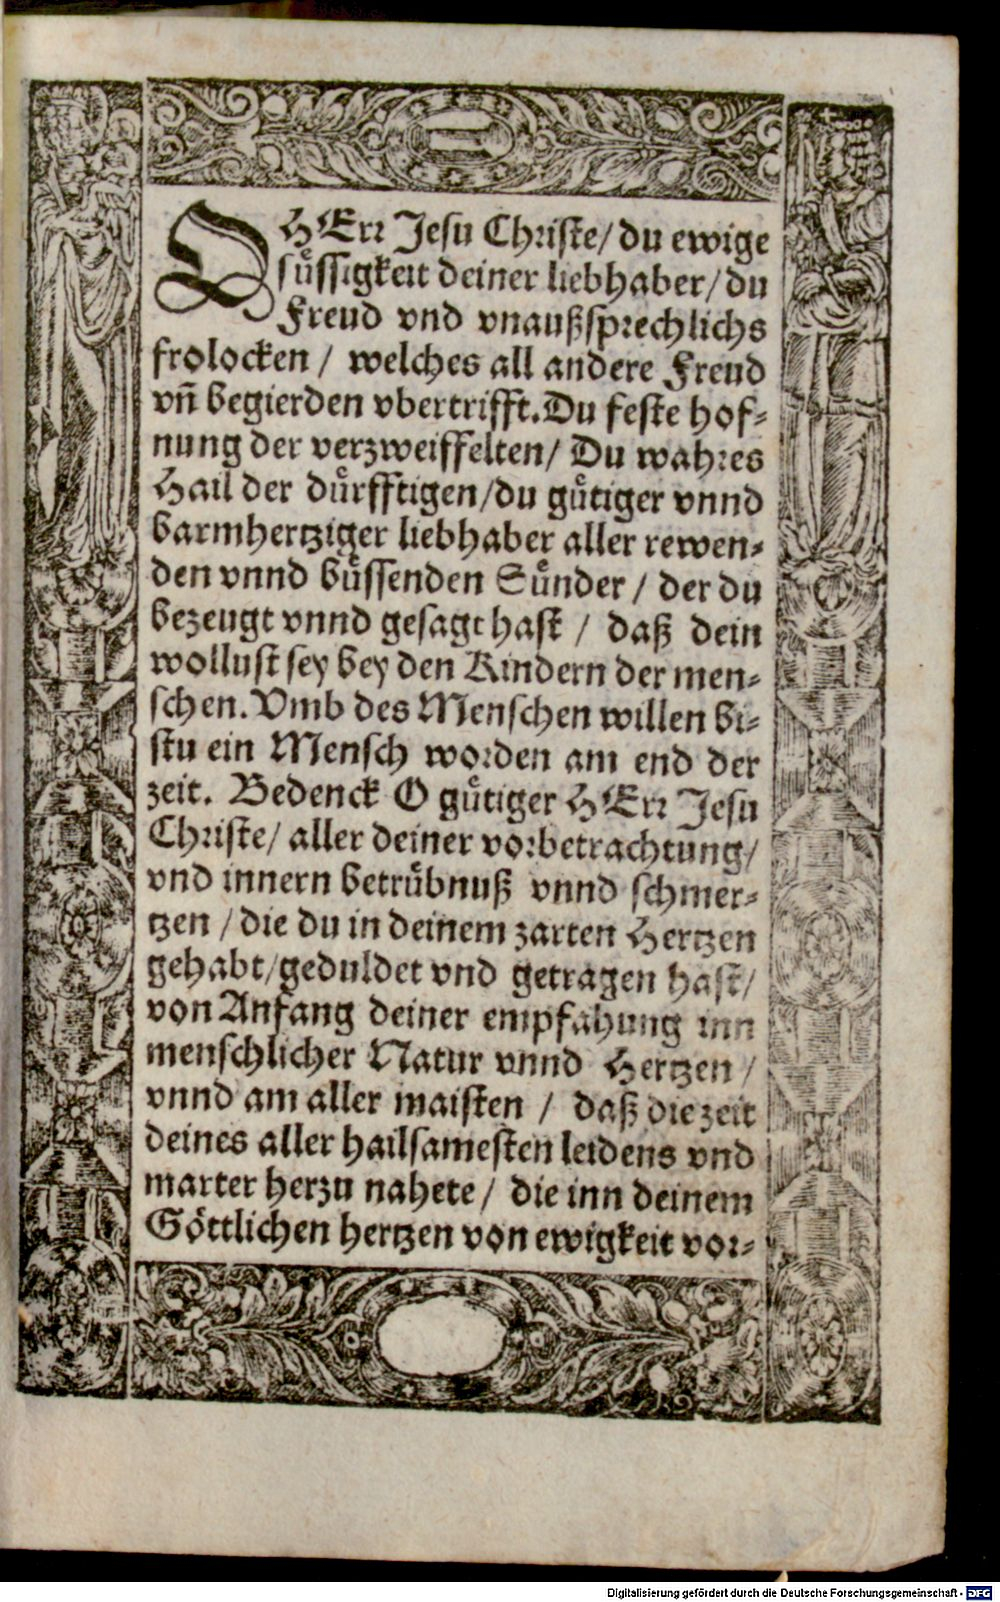 O HErr Jesu Christe/ du ewige
süssigkeit deiner liebhaber/ du
Freud vnd vnaußsprechlichs
frolocken / welches all andere Freud
vñ begierden vbertrifft. Du feste hof-
nung der verzweiffelten/ Du wahres
Hail der dürfftigen/ du gütiger vnnd
barmhertziger liebhaber aller rewen-
den vnnd büssenden Sünder / der du
bezeugt vnnd gesagt hast / daß dein
wollust sey bey den Kindern der men-
schen. Vmb des Menschen willen bi-
stu ein Mensch worden am end der
zeit. Bedenck O gütiger HErr Jesu
Christe/ aller deiner vorbetrachtung/
vnd innern betrübnuß vnnd schmer-
tzen / die du in deinem zarten Hertzen
gehabt/ geduldet vnd getragen hast/
von Anfang deiner empfahung inn
menschlicher Natur vnnd Hertzen /
vnnd am aller maisten / daß die zeit
deines aller hailsamesten leidens vnd
marter herzu nahete / die inn deinem
Göttlichen hertzen von ewigkeit vor-
Digitalisierung gefördert durch die Deutsche Forschungsgemeinschaft - DFG